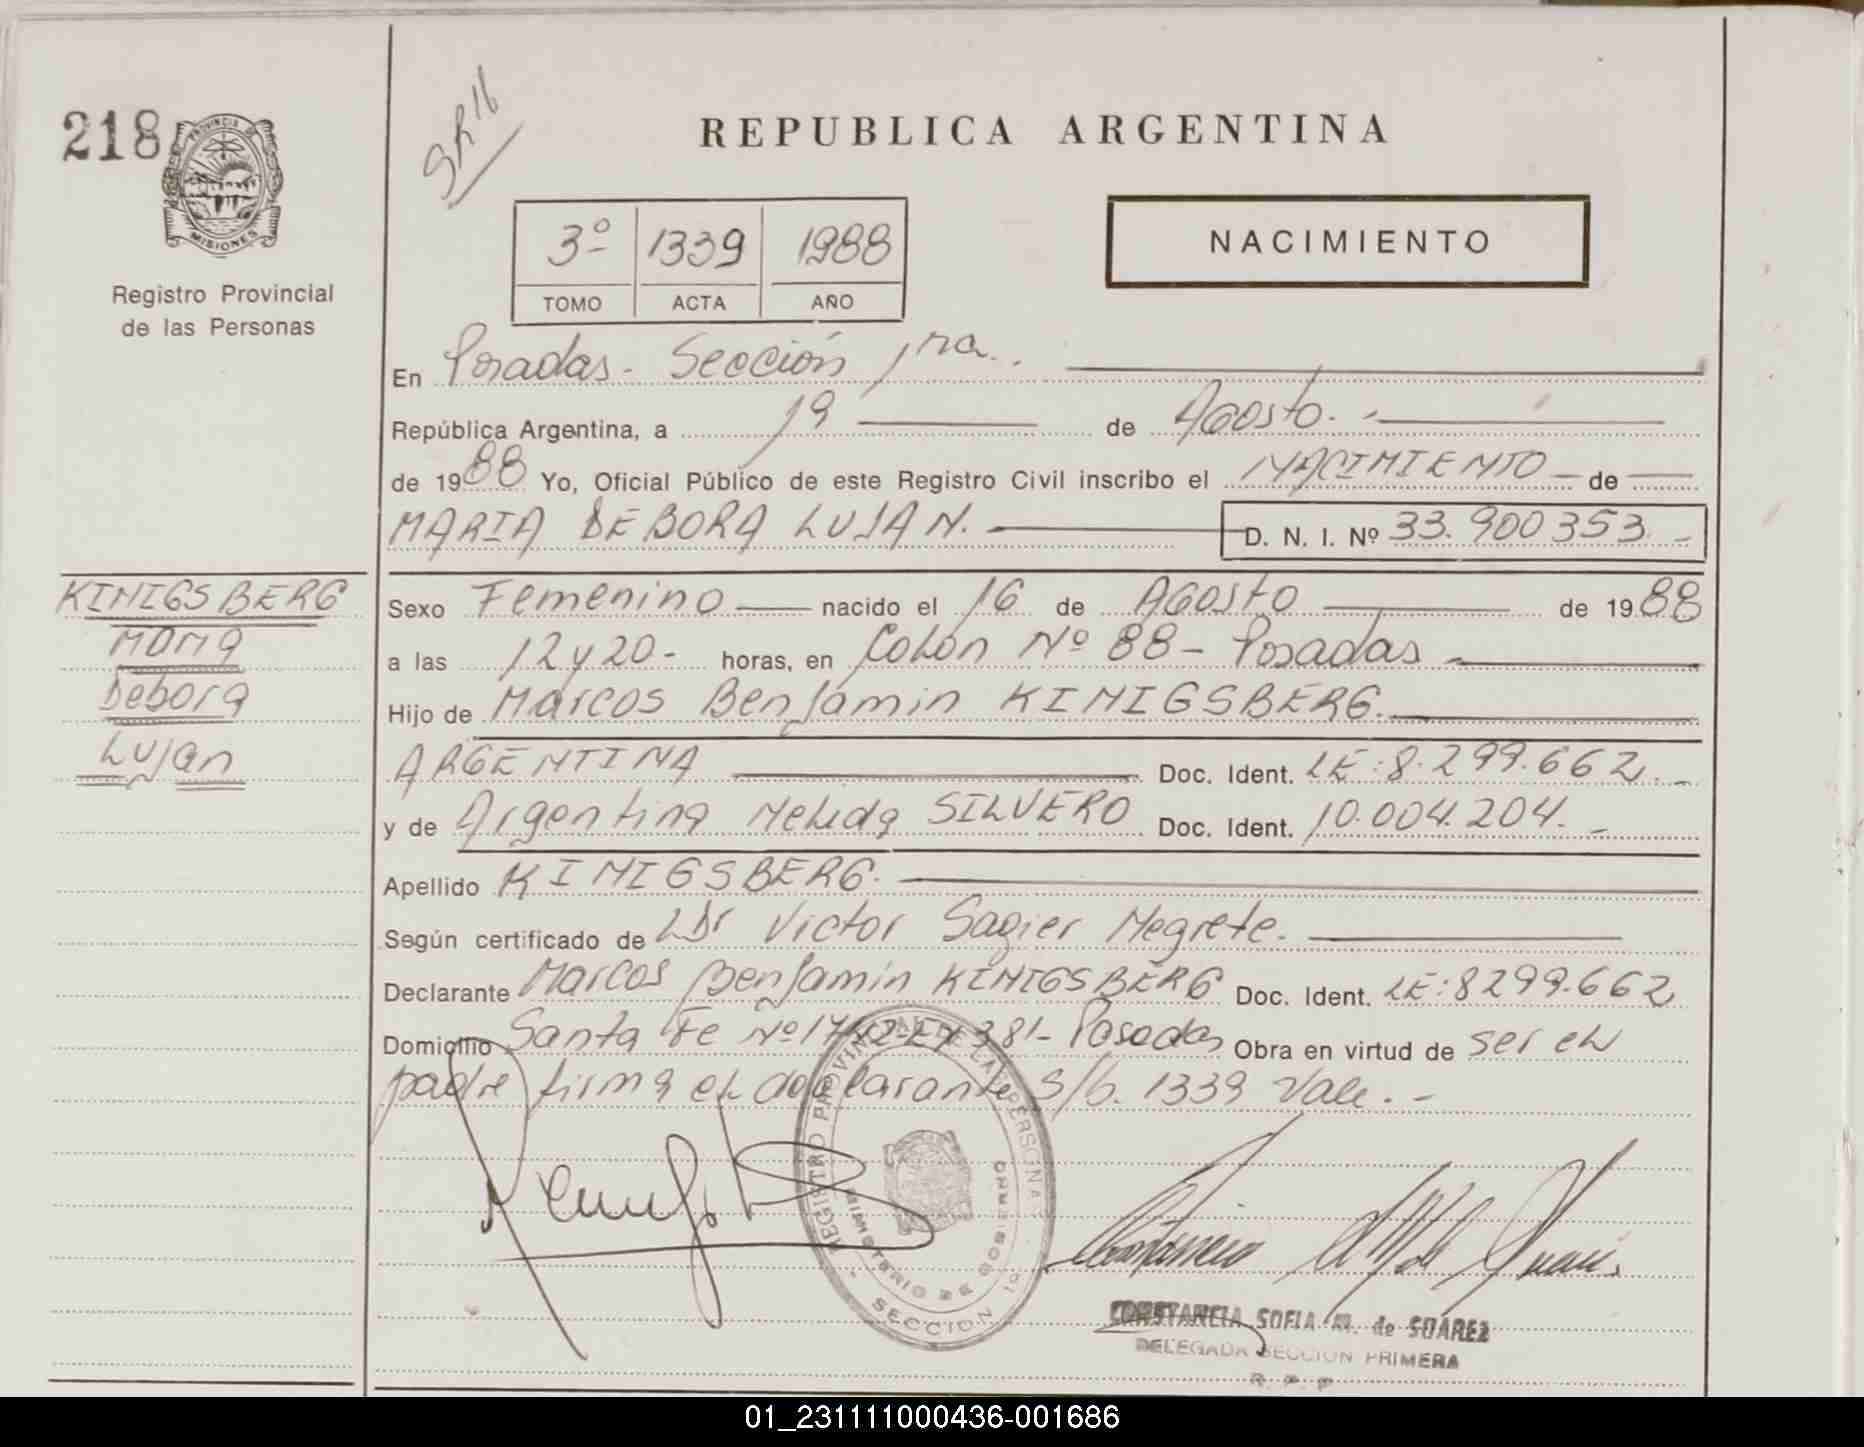 218
PROVINCIA DE
MISIONES
Registro Provincial
de las Personas
SR16
REPUBLICA ARGENTINA
3º 1339 1988
TOMO ACTA AÑO
NACIMIENTO
En Posadas - Sección 1ra.
República Argentina, a 19 de Agosto. -
de 1988 Yo, Oficial Público de este Registro Civil inscribo el NACIMIENTO - de
MARIA DEBORA LUJAN. D. N. I. Nº 33.900353. -
KINIGSBERG
Maria
Debora
Lujan
Sexo Femenino nacido el 16 de Agosto de 1988
a las 12 y 20 - horas, en Colon Nº 88 - Posadas
Hijo de Marcos Benjamin KINIGSBERG.
ARGENTINA Doc. Ident. LE: 8.299.662. -
y de Argentina Nelida SILVERO Doc. Ident. 10.004.204. -
Apellido KINIGSBERG.
Según certificado de Dr Victor Sagier Negrete.
Declarante Marcos Benjamin KINIGSBERG Doc. Ident. LE: 8299.662
Domicilio Santa Fe Nº 381 - Posadas Obra en virtud de ser el
padre firma el declarante S/b. 1339 Vale. -
REGISTRO PROVINCIAL DE LAS PERSONAS
MINISTERIO DE GOBIERNO
- SECCION 1º
CONSTANCIA SOFIA M. de SUAREZ
DELEGADA SECCION PRIMERA
R. P. P
01_231111000436-001686